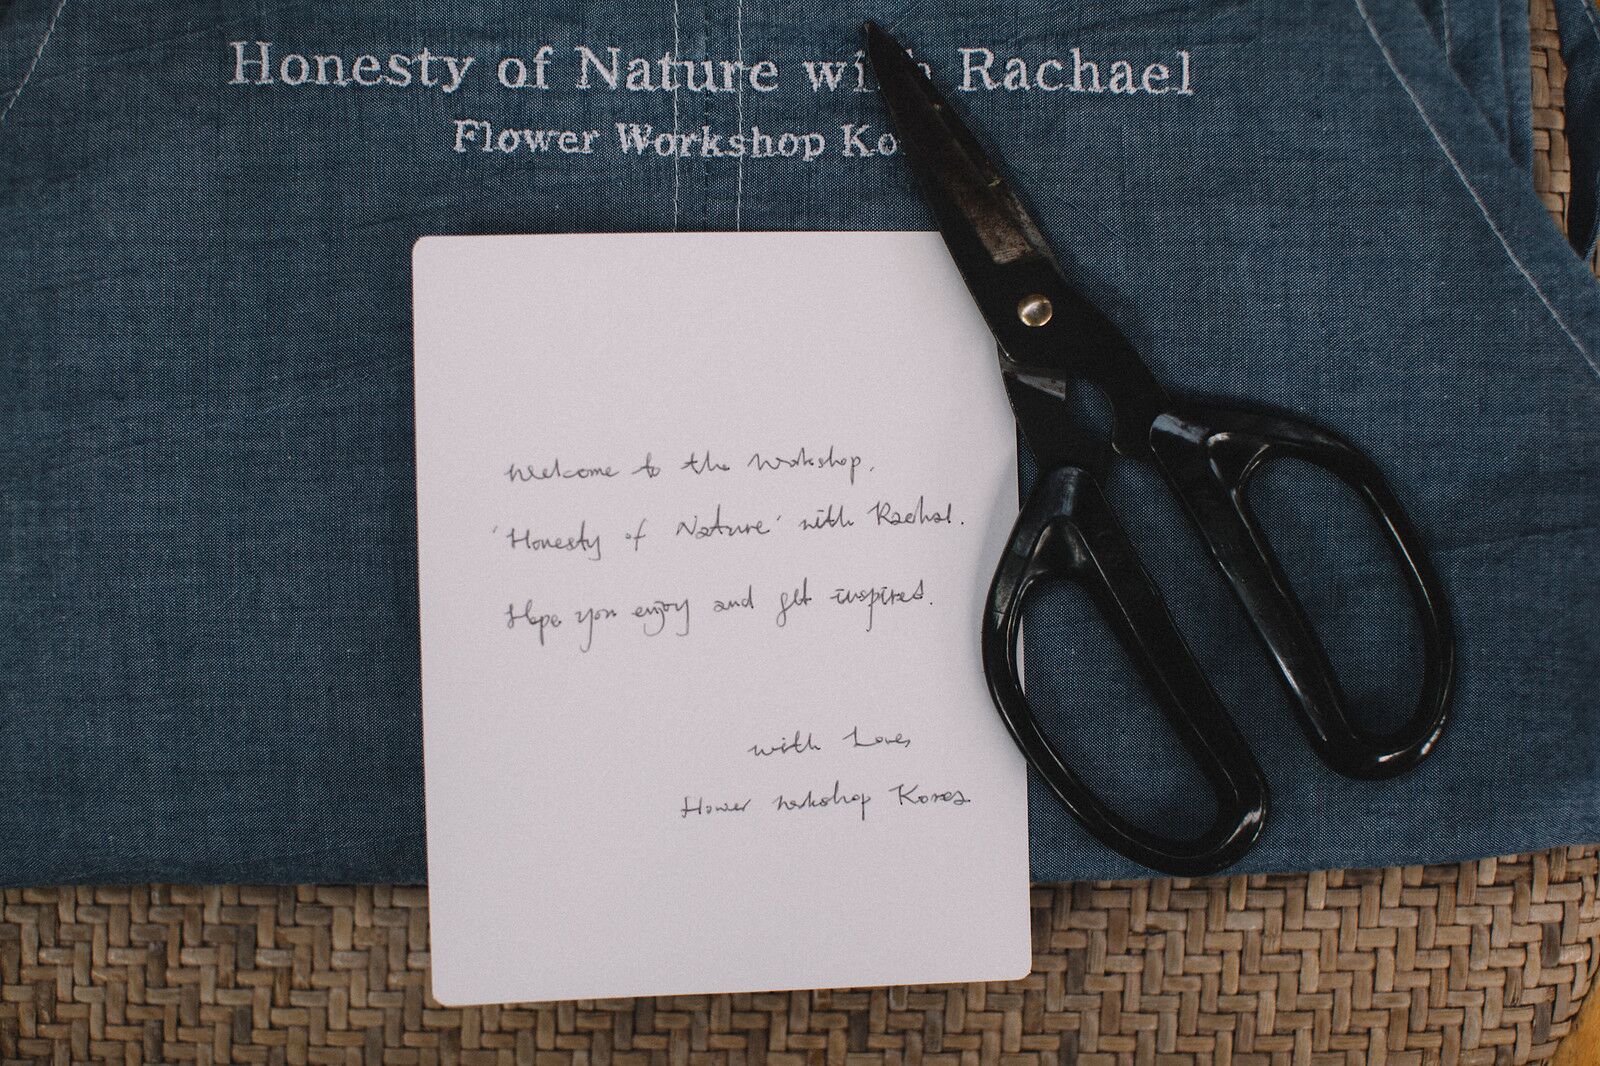 Honesty of Nature with Rachael
Flower Workshop Ko
Welcome to the Workshop,
'Honesty of Nature' with Rachel.
Hope you enjoy and get inspired.
with Loves
Flower workshop Korea